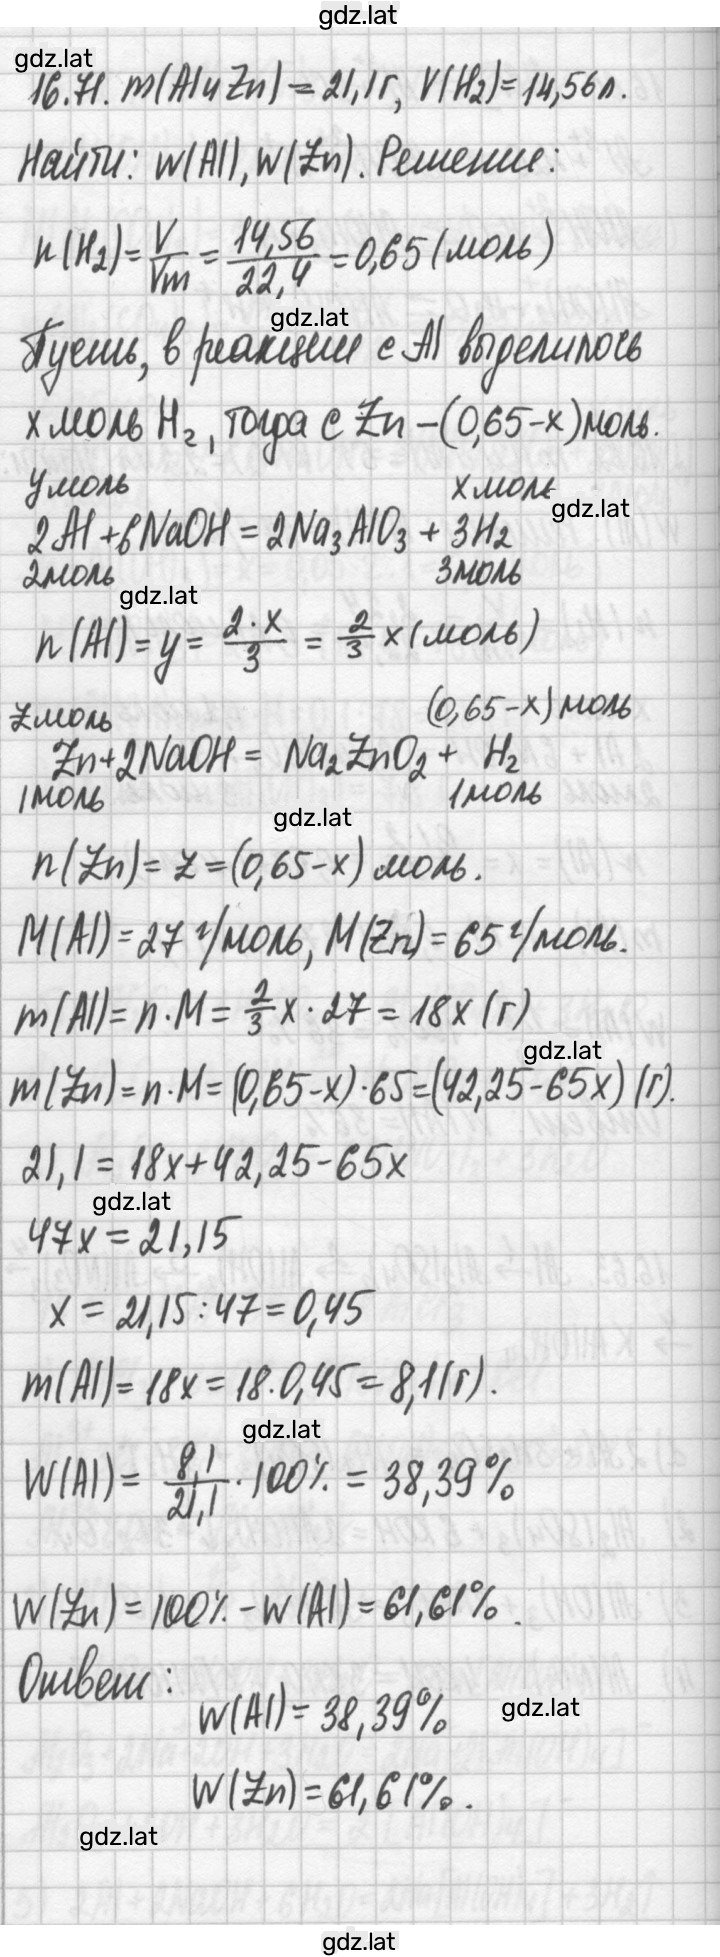 gdz.lat
gdz.lat
16.71. m(Al и Zn) = 21,1г, V(H₂)=14,56л.
Найти: w(Al), w(Zn). Решение:
n(H₂)= V/Vm = 14,56/22,4 = 0,65 (моль)
gdz.lat
Пусть, в реакции с Al выделилось
x моль H₂, тогда с Zn – (0,65-x) моль.
y моль x моль
gdz.lat
2Al + 6NaOH = 2Na₃AlO₃ + 3H₂
2моль 3моль
gdz.lat
n(Al) = y = 2·x/3 = 2/3 x (моль)
z моль (0,65-x) моль
Zn+2NaOH = Na₂ZnO₂ + H₂
1моль 1моль
gdz.lat
n(Zn) = z = (0,65-x) моль.
M(Al) = 27 г/моль, M(Zn) = 65 г/моль.
m(Al) = n·M = 2/3 x · 27 = 18x (г)
gdz.lat
m(Zn) = n·M = (0,65-x)·65=(42,25-65x) (г).
21,1 = 18x+42,25-65x
gdz.lat
47x = 21,15
x = 21,15:47 = 0,45
m(Al) = 18x = 18·0,45 = 8,1(г).
gdz.lat
W(Al) = 8,1/21,1 · 100% = 38,39%
W(Zn) = 100% - w(Al) = 61,61%.
Ответ:
w(Al) = 38,39%
gdz.lat
w(Zn) = 61,61%.
gdz.lat
gdz.lat